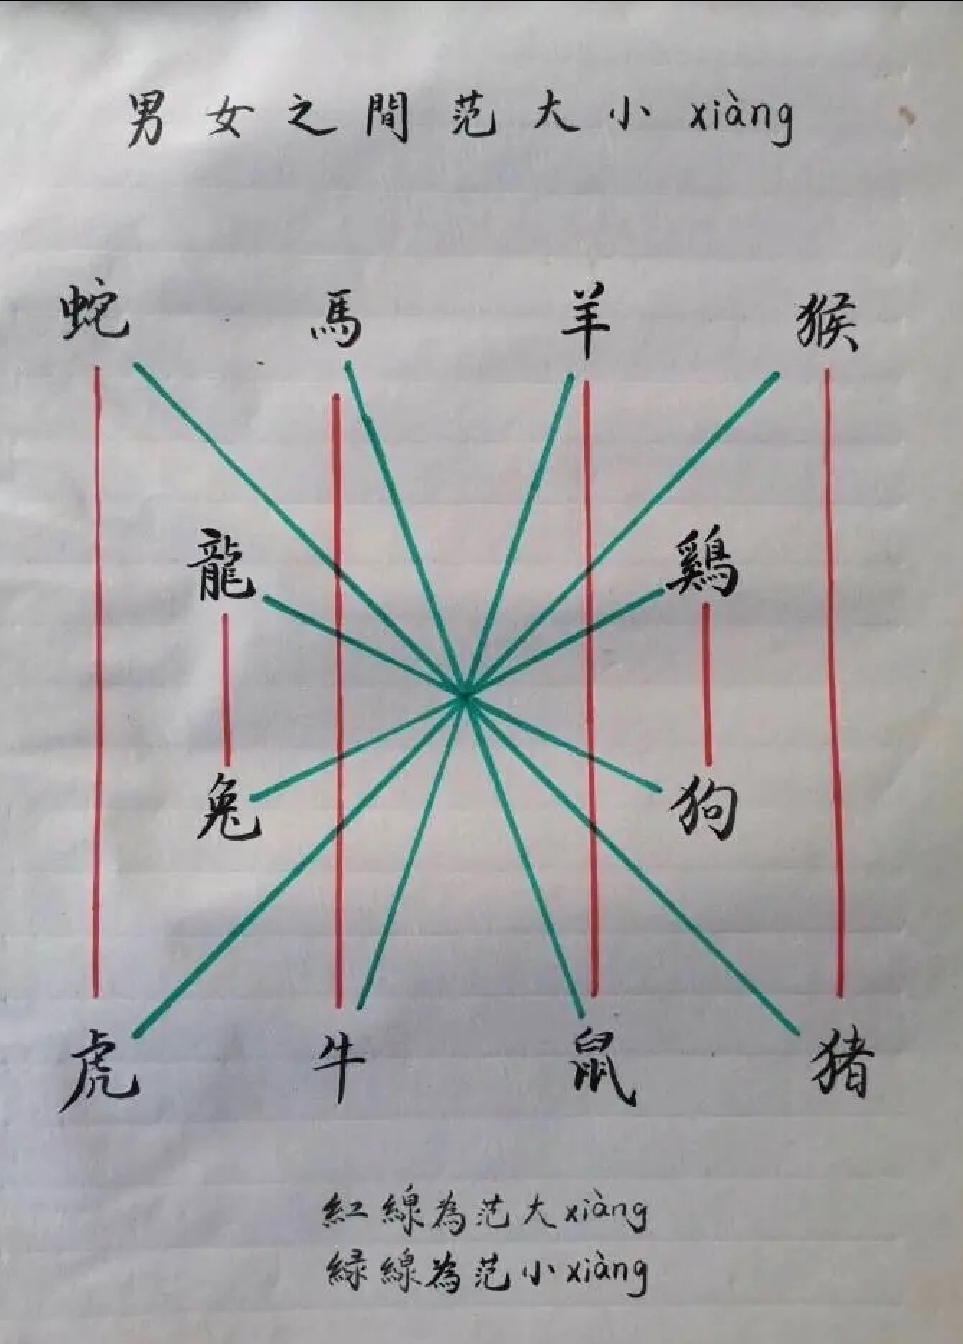 男女之間范大小xiàng
蛇 馬 羊 猴
龍 鷄
兔 狗
虎 牛 鼠 猪
紅線為范大xiàng
緑線為范小xiàng